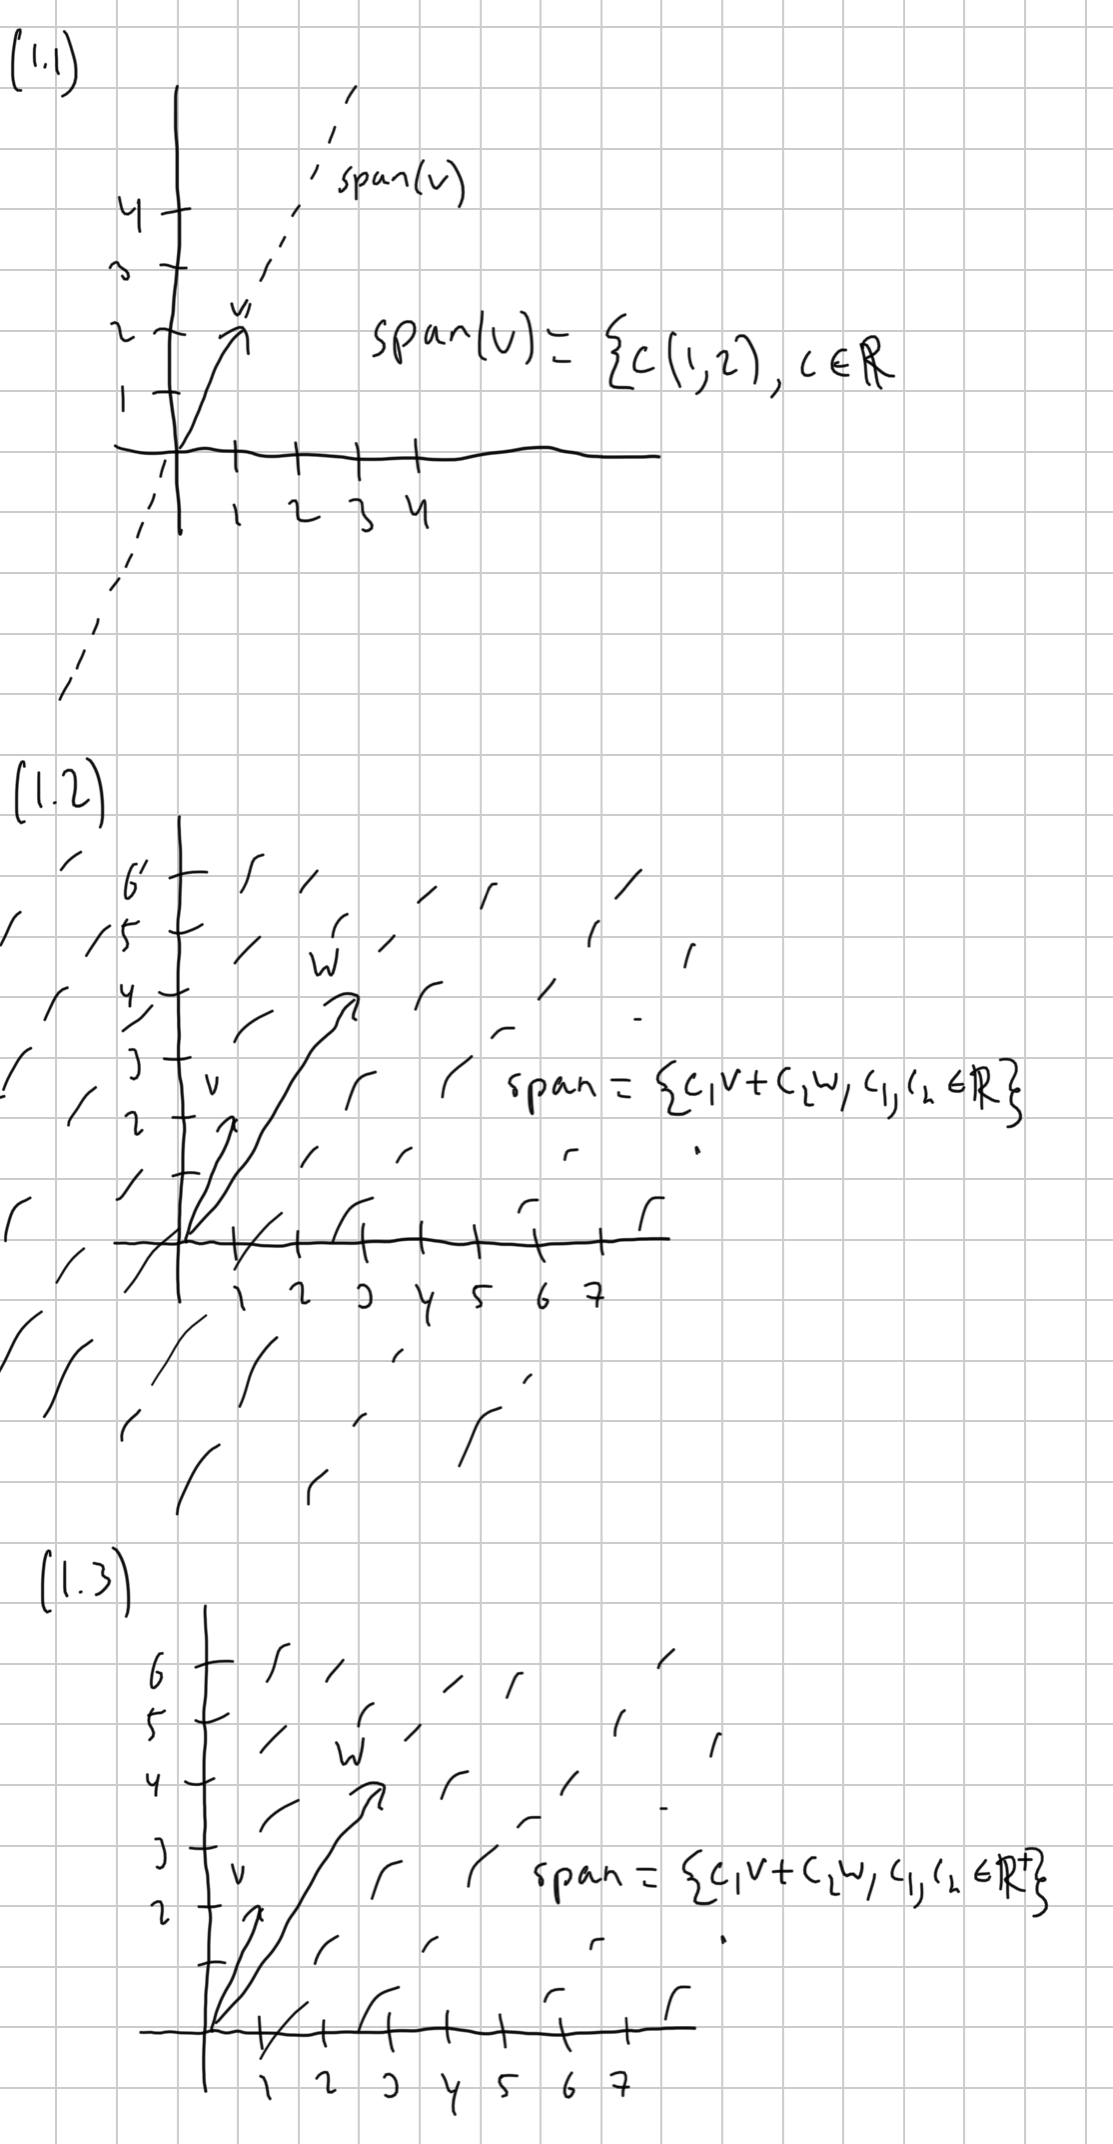 (1.1)
span(v)
4
3
v
2
span(v) = {c(1,2), c ∈ ℝ
1
1 2 3 4
(1.2)
6
5
W
4
3
v
span = {c₁v + c₂w, c₁, c₂ ∈ ℝ}
2
1 2 3 4 5 6 7
(1.3)
6
5
W
4
3
v
span = {c₁v + c₂w, c₁, c₂ ∈ ℝ⁺}
2
1 2 3 4 5 6 7